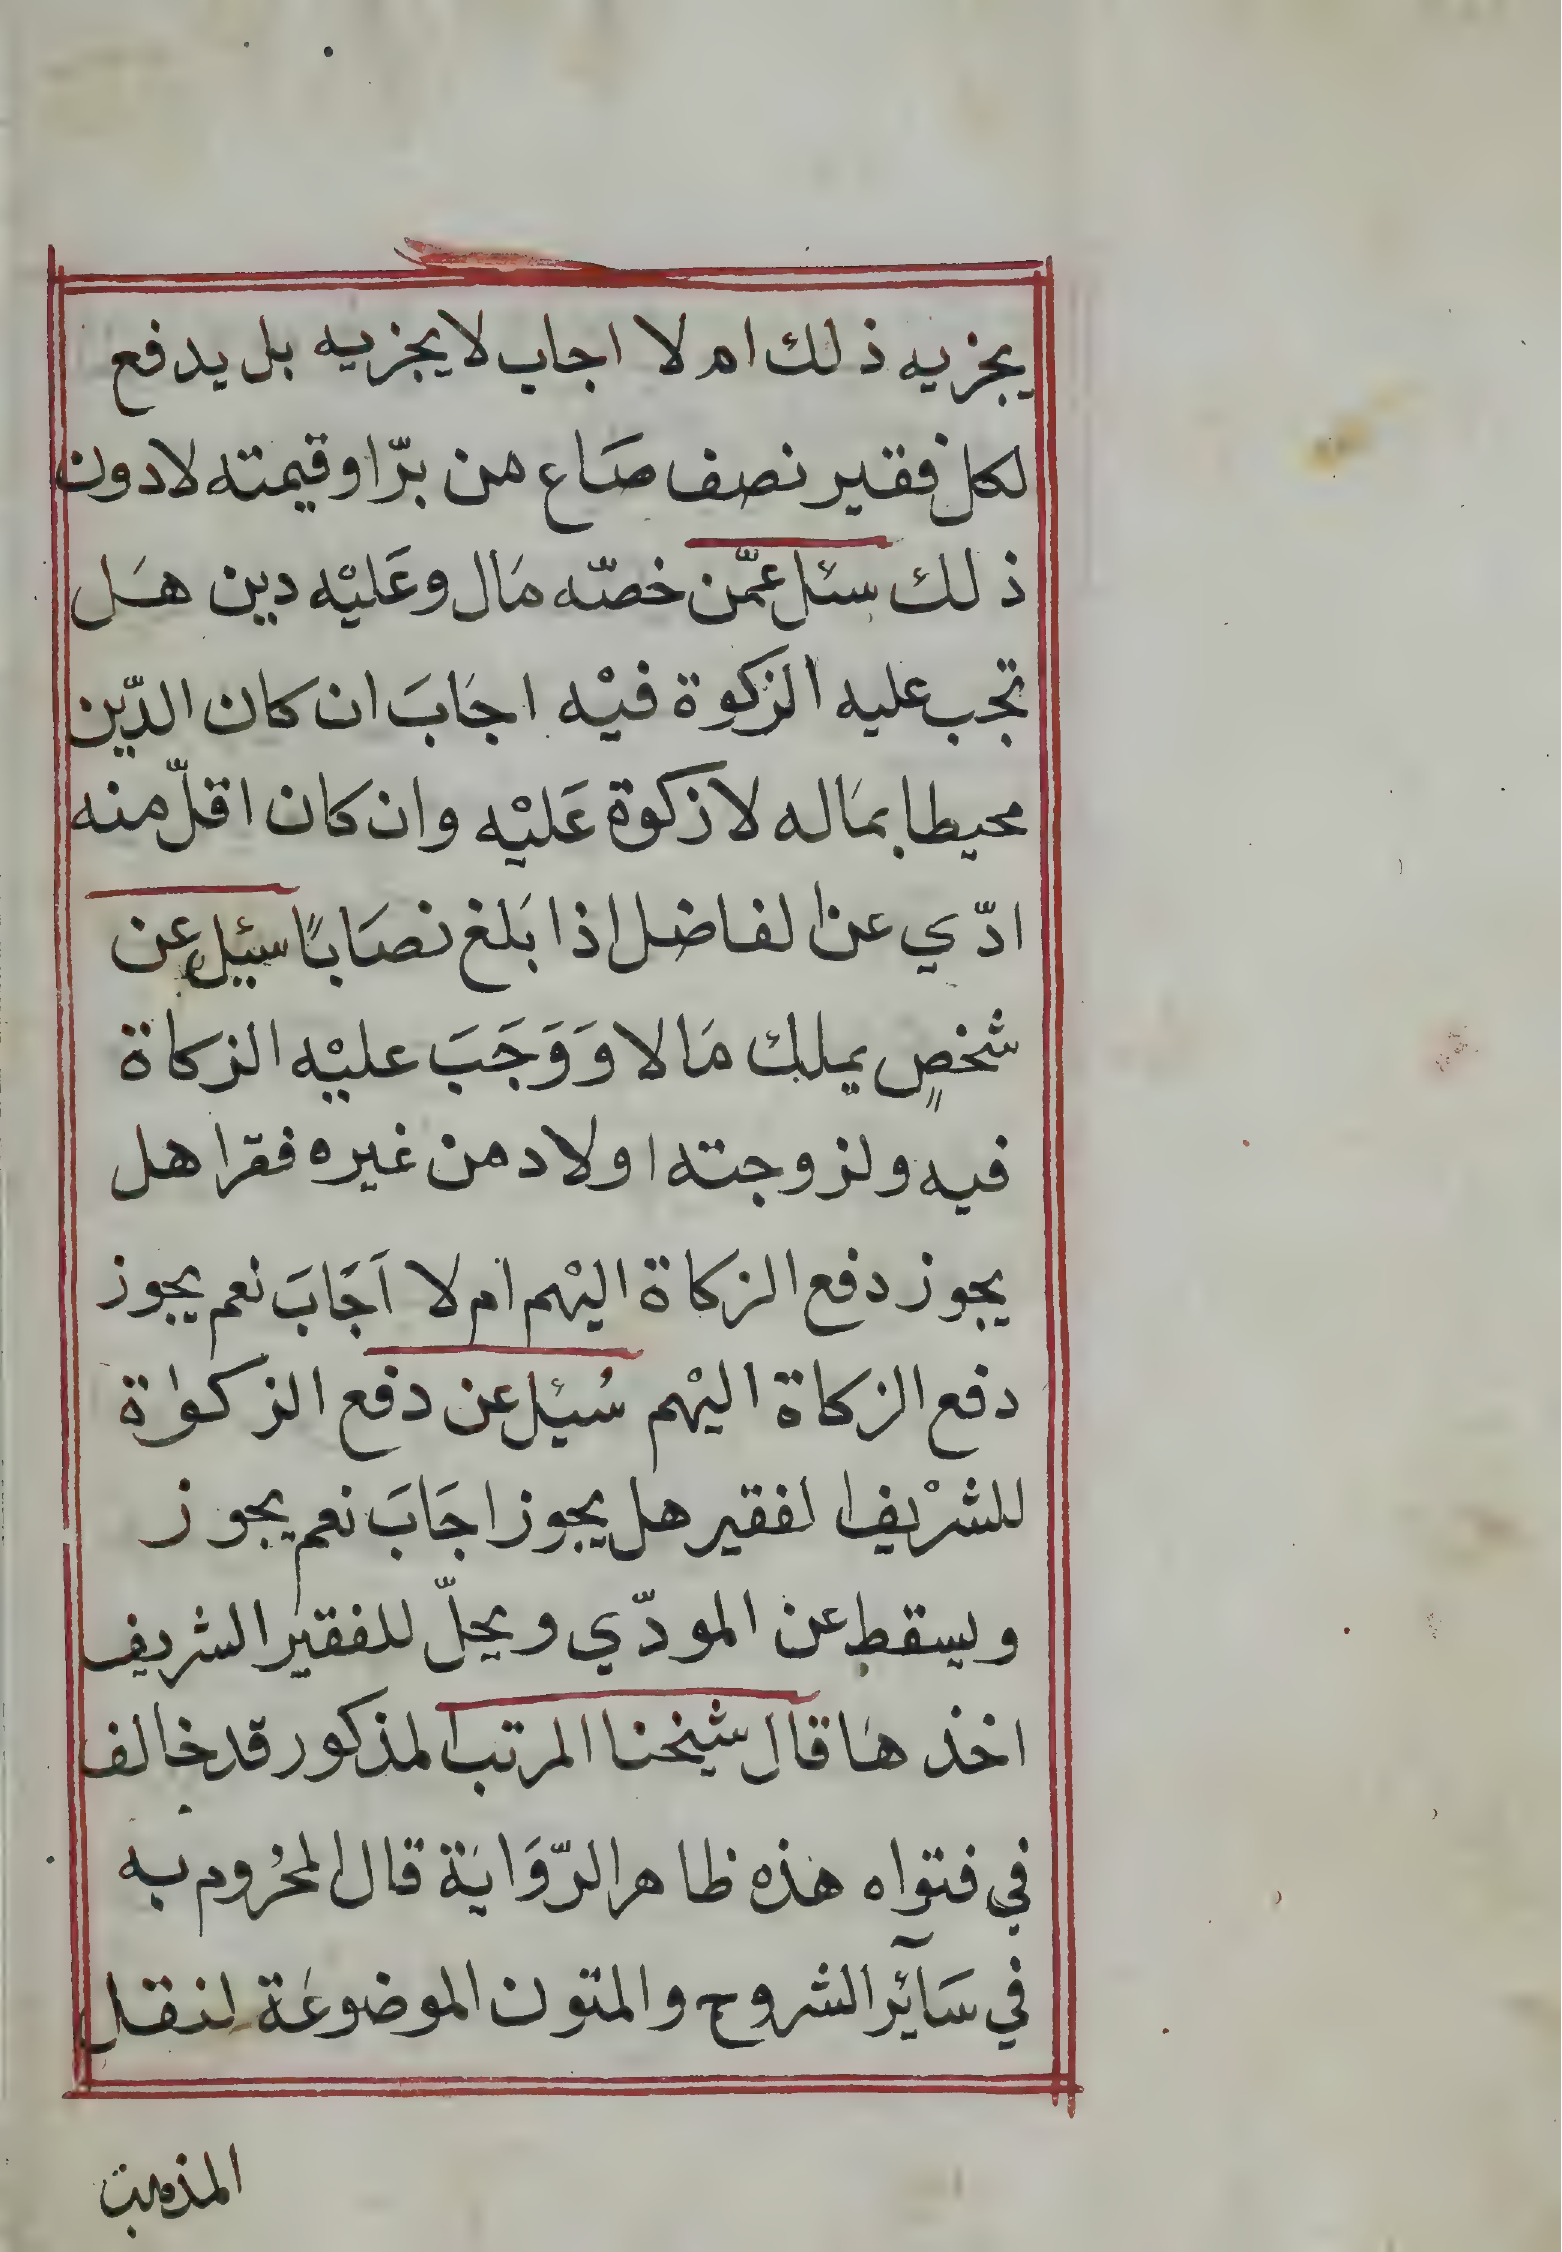 يجزيه ذلك ام لا اجاب لا يجزيه بل يدفع
لكل فقير نصف صَاع من برّ او قيمته لا دون
ذلك سئل عمّن خصّه مَال وعَليْه دين هَل
تجب عليه الزكوة فيْه اجَابَ ان كان الدّين
محيطا بمَاله لا زكوة عَليْه وان كان اقلّ منه
ادّي عن الفاضل اذا بَلغ نصَابًا سئيل عن
شخصٍ يملك مَالا وَوَجَبَ عليْه الزكاة
فيه ولزوجته اولاد من غيره فقرا هل
يجوز دفع الزكاة اليْهم ام لا اَجَابَ نعم يجوز
دفع الزكاة اليْهم سُئيل عن دفع الزكواة
للشرْيف الفقير هل يجوز اجَابَ نعم يجوز
ويسقط عن المودّي ويحلّ للفقير الشريف
اخذهَا قال شيخنا المرتب المذكور قد خالف
في فتواه هذه ظاهر الرّوَايَة قال المحُروم به
في سَآئر الشروح والمتون الموضوعَة لنقل
المذهب